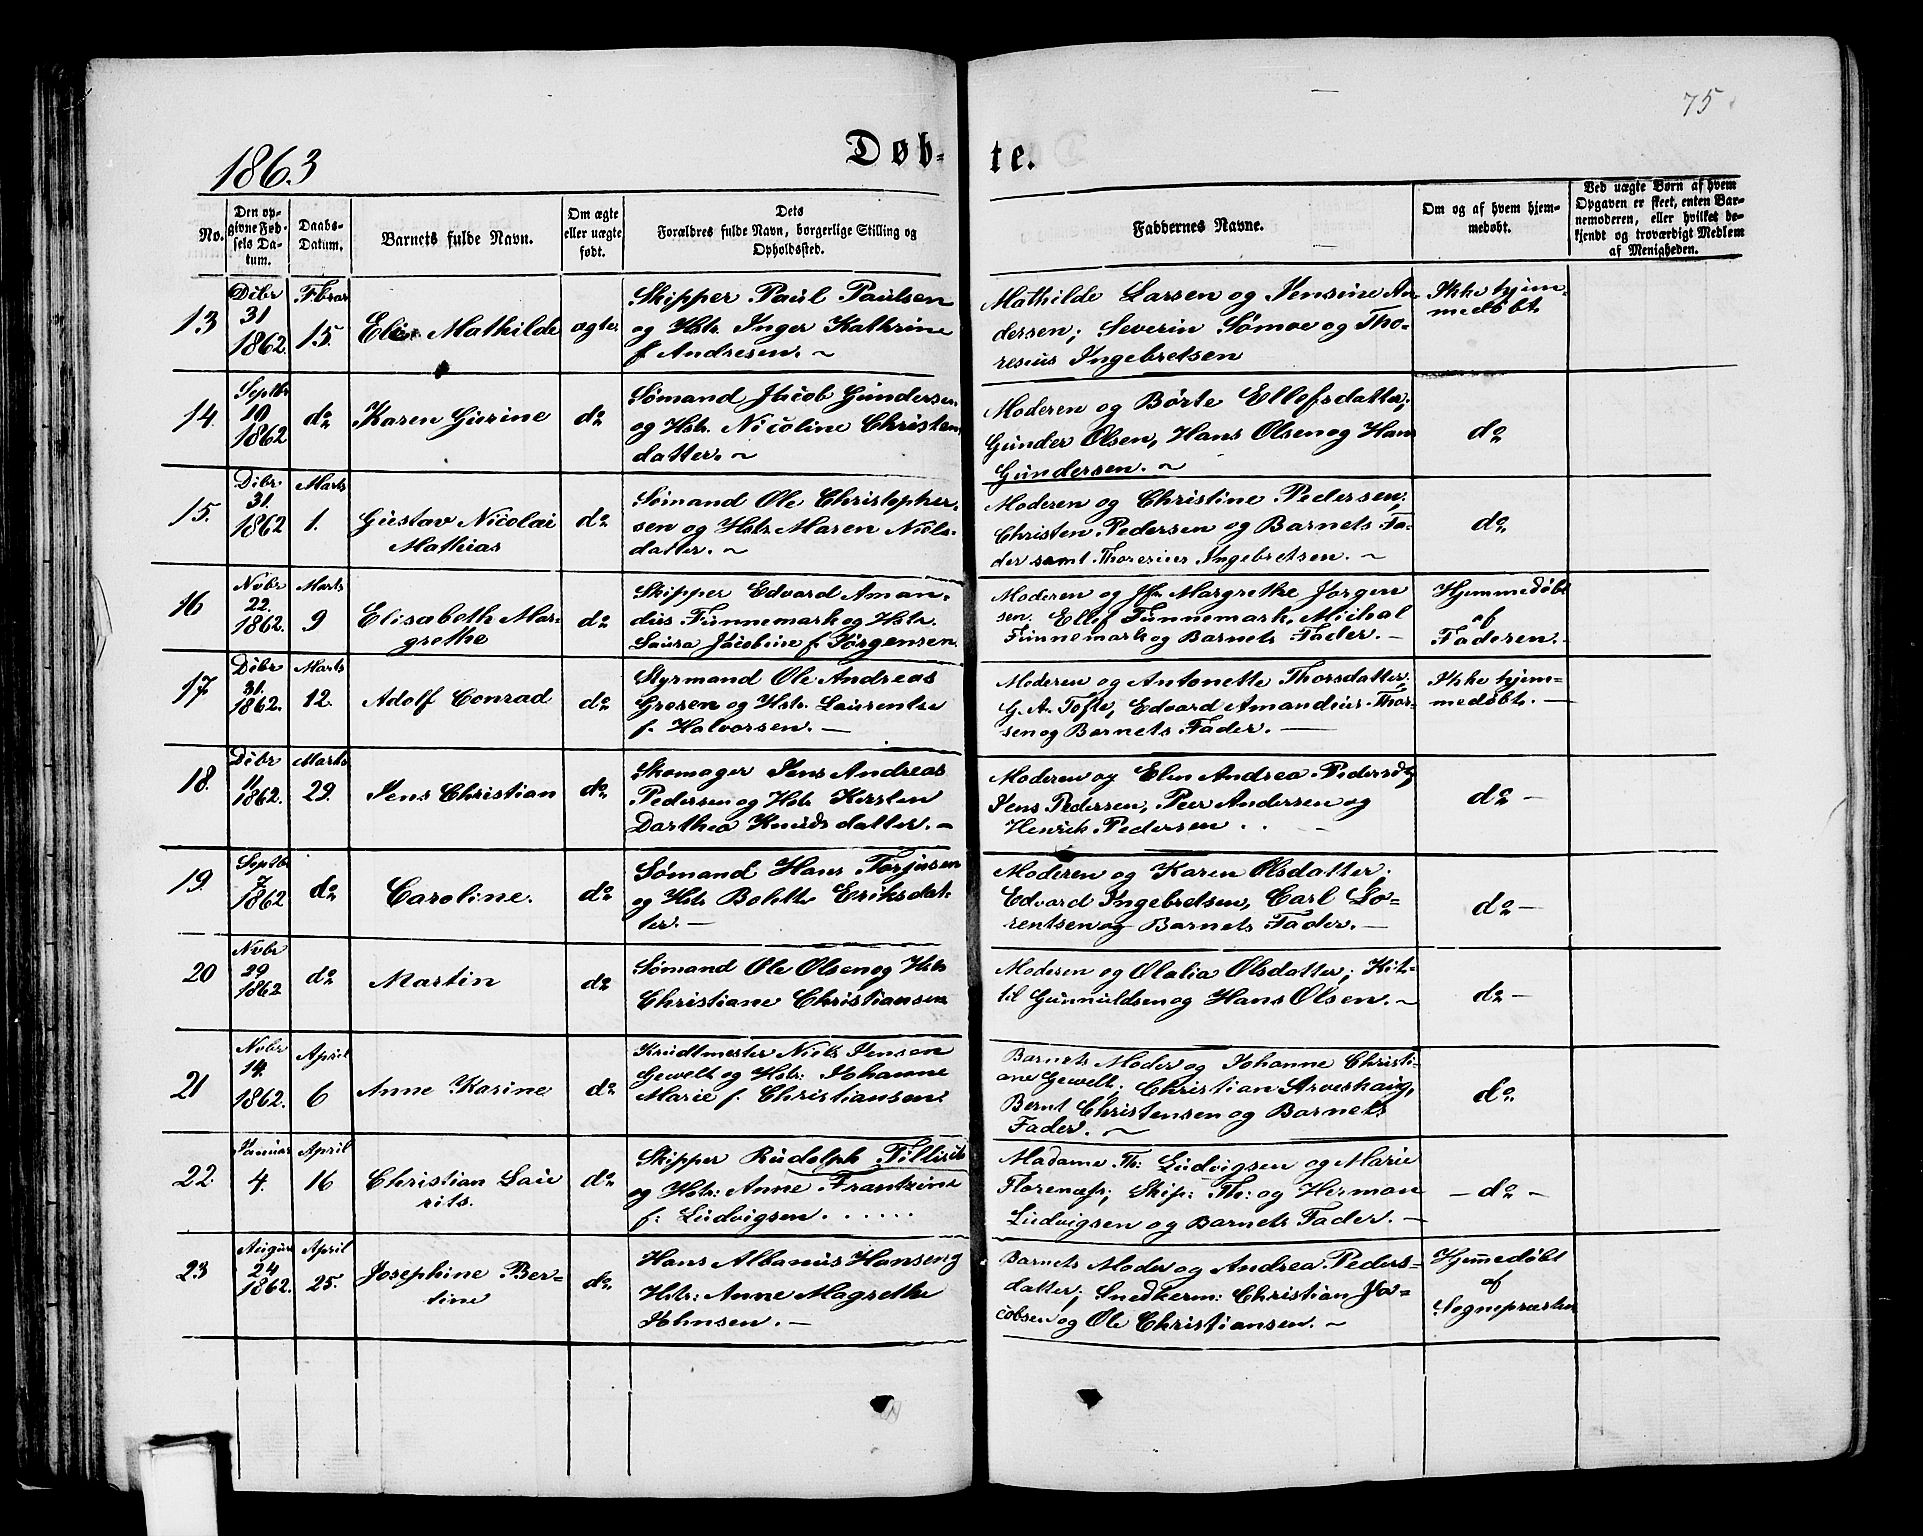 75
1863
Døb-
te.
No.
Den op-
givne Fød-
sels Da-
tum.
Daabs-
Datum.
Barnets fulde Navn.
Om ægte
eller uægte
født.
Dets
Forældres fulde Navn, borgerlige Stilling og
Opholdssted.
Faddernes Navne.
Om og af hvem hjem-
medøbt.
Ved uægte Børn af hvem
Opgaven er skeet, enten Bar-
nemoderen, eller hvilket be-
kjendt og troværdigt Medlem
af Menigheden.
13
Dcbr
31
1862.
Fbrar
15.
Elie Mathilde
ægte.
Skipper Paul Paulsen
og Hstr. Inger Kathrine
f Andresen. ~
Mathilde Larsen og Jensine An-
dersen; Severin Sømoe og Tho-
resius Ingebretsen
Ikke hjem-
medøbt
14.
Septbr
19
1862
do
Karen Gurine
do
Sømand Jacob Gundersen
og Hstr. Nicoline Christen
datter. ~
Moderen og Børte Ellefsdatter;
Gunder Olsen, Hans Olsen og Hans
Gundersen. ~
do
15.
Dcbr
31.
1862
Marts
1.
Gustav Nicolai
Mathias
do
Sømand Ole Christopher-
sen og Hstr. Maren Niels-
datter. ~
Moderen og Christine Pedersen;
Christen Pedersen og Barnets Fa-
der samt Thoresius Ingebretsen. ~
do
16
Nvbr
22.
1862
Marts
9
Elisabeth Mar-
grethe
do
Skipper Edvard Aman-
dus Funnemark og Hstr.
Laura Jacobine f. Jørgensen
Moderen og Jfr. Margrethe Jørgen
sen. Ellef Funnemark, Michal
Funnemark og Barnets Fader. -
Hjemmedøbt
af
Faderen. -
17.
Dcbr
31.
1862.
Marts
12.
Adolf Conrad
do
Styrmand Ole Andreas
Grosen og Hstr. Laurentse
f. Halvorsen. -
Moderen og Antonette Thorsdatter;
G. A. Tofte, Edvard Amandius Thor-
sen og Barnets Fader. -
Ikke hjem-
medøbt. -
18.
Dcbr
11
1862.
Marts
29.
Jens Christian
do
Skomager Jens Andreas
Pedersen og Hstr. Kirsten
Dorthea Knudsdatter. -
Moderen og Elen Andrea Pedersd;
Jens Pedersen, Peer Andersen og
Henrik Pedersen . . -
do -
19.
Septbr
7.
1862
do
Caroline.
do
Sømand Hans Torjusen
og Hstr. Bolette Eriksdat-
ter. -
Moderen og Karen Olsdatter.
Edvard Ingebretsen, Carl Lo-
rentsen og Barnets Fader. -
do -
20
Nvbr
29
1862
do
Martin
do
Sømand Ole Olsen og Hstr
Christiane Christiansen
Moderen og Olalia Olsdatter; Kit-
til Gunnuldsen og Hans Olsen. ~
do -
21
Nvbr
14.
1862.
April
6
Anne Karine
do
Krudtmester Niels Jensen
Gewelt og Hstr: Johanne
Marie f. Christiansen.
Barnets Moder og Johanne Christi-
ane Gewelt; Christian Arveskaug,
Bernt Christensen og Barnets
Fader. ~
do
22.
Januar
4.
April
16
Christian Lau
rits.
do
Skipper Rudolph Tillisch
og Hstr: Anne Frantzine
f: Ludvigsen . . . . . .
Madame Th: Ludvigsen og Marie
Florenæss; Skip: Th: og Herman
Ludvigsen og Barnets Fader. -
- do -
23
August
24
1862.
April
25.
Josephine Ber-
tine
do
Hans Albanus Hansen og
Hstr: Anne Magrethe
Johnsen. -
Barnets Moder og Andrea Peders-
datter; Snedkerm: Christian Ja-
cobsen og Ole Christiansen. ~
Hjemmedøbt
af
Sognepræsten